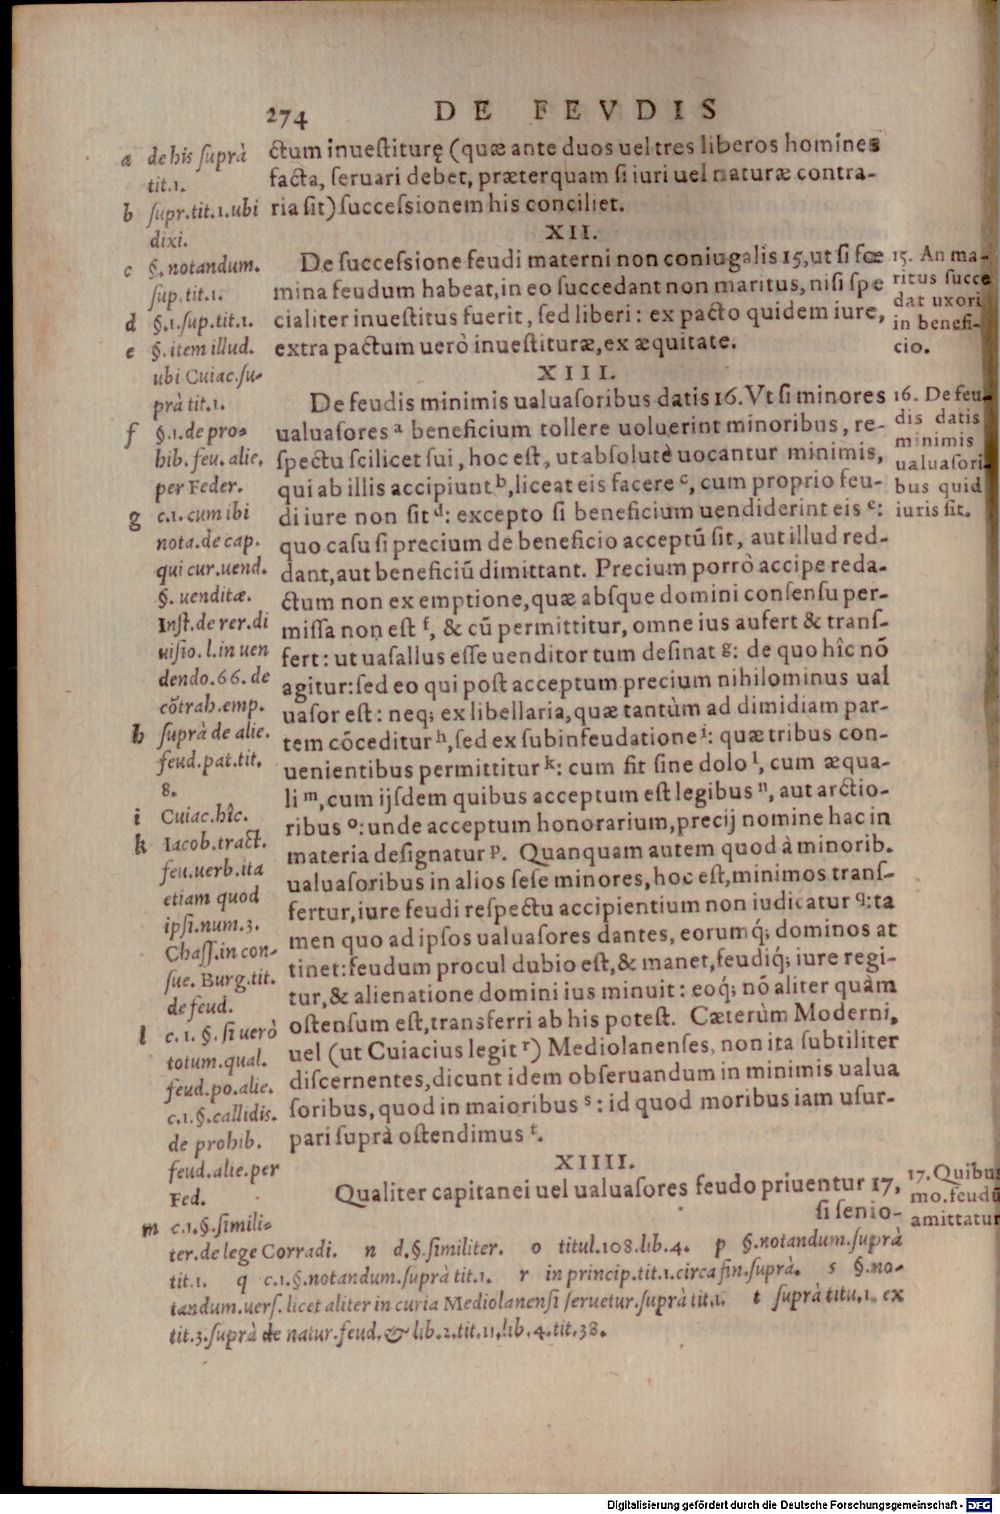 274 DE FEVDIS
ctum inuestiturę (quæ ante duos uel tres liberos homines
facta, seruari debet, præterquam si iuri uel naturæ contra-
ria sit) successionem his conciliet.
XII.
De successione feudi materni non coniugalis 15, ut si fœ
mina feudum habeat, in eo succedant non maritus, nisi spe
cialiter inuestitus fuerit, sed liberi: ex pacto quidem iure,
extra pactum uerò inuestituræ, ex æquitate.
XIII.
De feudis minimis ualuasoribus datis 16. Vt si minores
ualuasores a beneficium tollere uoluerint minoribus, re-
spectu scilicet sui, hoc est, ut absolutè uocantur minimis,
qui ab illis accipiunt b, liceat eis facere c, cum proprio feu-
di iure non sit d: excepto si beneficium uendiderint eis e:
quo casu si precium de beneficio acceptũ sit, aut illud red-
dant, aut beneficiũ dimittant. Precium porrò accipe reda-
ctum non ex emptione, quæ absque domini consensu per-
missa non est f, & cũ permittitur, omne ius aufert & trans-
fert: ut uasallus esse uenditor tum desinat g: de quo hîc nõ
agitur: sed eo qui post acceptum precium nihilominus ual
uasor est: neq; ex libellaria, quæ tantùm ad dimidiam par-
tem cõceditur h, sed ex subinfeudatione i: quæ tribus con-
uenientibus permittitur k: cum fit sine dolo l, cum æqua-
li m, cum ijsdem quibus acceptum est legibus n, aut arctio-
ribus o: unde acceptum honorarium, precij nomine hac in
materia designatur p. Quanquam autem quod à minorib.
ualuasoribus in alios sese minores, hoc est, minimos trans-
fertur, iure feudi respectu accipientium non iudicatur q: ta
men quo ad ipsos ualuasores dantes, eorumq́; dominos at
tinet: feudum procul dubio est, & manet, feudiq́; iure regi-
tur, & alienatione domini ius minuit: eoq́; nõ aliter quàm
ostensum est, transferri ab his potest. Cæterùm Moderni,
uel (ut Cuiacius legit r) Mediolanenses, non ita subtiliter
discernentes, dicunt idem obseruandum in minimis ualua
soribus, quod in maioribus s: id quod moribus iam usur-
pari suprà ostendimus t.
XIIII.
Qualiter capitanei uel ualuasores feudo priuentur 17,
si senio-
a de his suprà
tit.1.
b supr.tit.1.ubi
dixi.
c §.notandum.
sup.tit.1.
d §.1.sup.tit.1.
e §.item illud.
ubi Cuiac.su-
prà tit.1.
f §.1.de pro-
hib.feu.alie.
per Feder.
g c.1.cum ibi
nota.de cap.
qui cur.uend.
§.uenditæ.
Inst.de rer.di
uisio.l.in uen
dendo.66.de
cõtrah.emp.
h suprà de alie.
feud.pat.tit.
8.
i Cuiac.hîc.
k Iacob.tract.
feu.uerb.ita
etiam quod
ipsi.num.3.
Chass.in con-
sue. Burg.tit.
de feud.
l c.1.§.si uerò
totum.qual.
feud.po.alie.
c.1.§.callidis.
de prohib.
feud.alie.per
Fed.
m c.1.§.simili-
ter.de lege Corradi. n d.§.similiter. o titul.108.lib.4. p §.notandum.suprà
tit.1. q c.1.§.notandum.suprà tit.1. r in princip.tit.1.circa fin.suprà. s §.no-
tandum.uers.licet aliter in curia Mediolanensi seruetur.suprà tit.1. t suprà titu.1. ex
tit.3.suprà de natur.feud.& lib.2.tit.11.lib.4.tit.38.
15. An ma-
ritus succe
dat uxori
in benefi-
cio.
16. De feu-
dis datis
minimis
ualuasori-
bus quid
iuris sit.
17. Quibus
mo. feudũ
amittatur
Digitalisierung gefördert durch die Deutsche Forschungsgemeinschaft - DFG